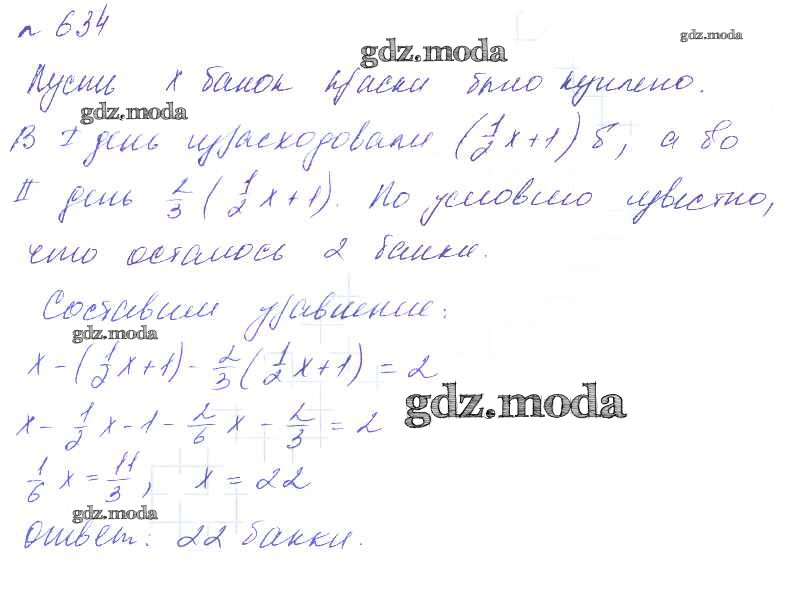 № 634
gdz.moda
gdz.moda
Пусть x банок краски было куплено.
gdz.moda
В I день израсходовали (1/2 x + 1) б, а во
II день 2/3 (1/2 x + 1). По условию известно,
что осталось 2 банки.
Составим уравнение:
gdz.moda
x - (1/2 x + 1) - 2/3 (1/2 x + 1) = 2
gdz.moda
x - 1/2 x - 1 - 2/6 x - 2/3 = 2
1/6 x = 11/3, x = 22
gdz.moda
Ответ: 22 банки.